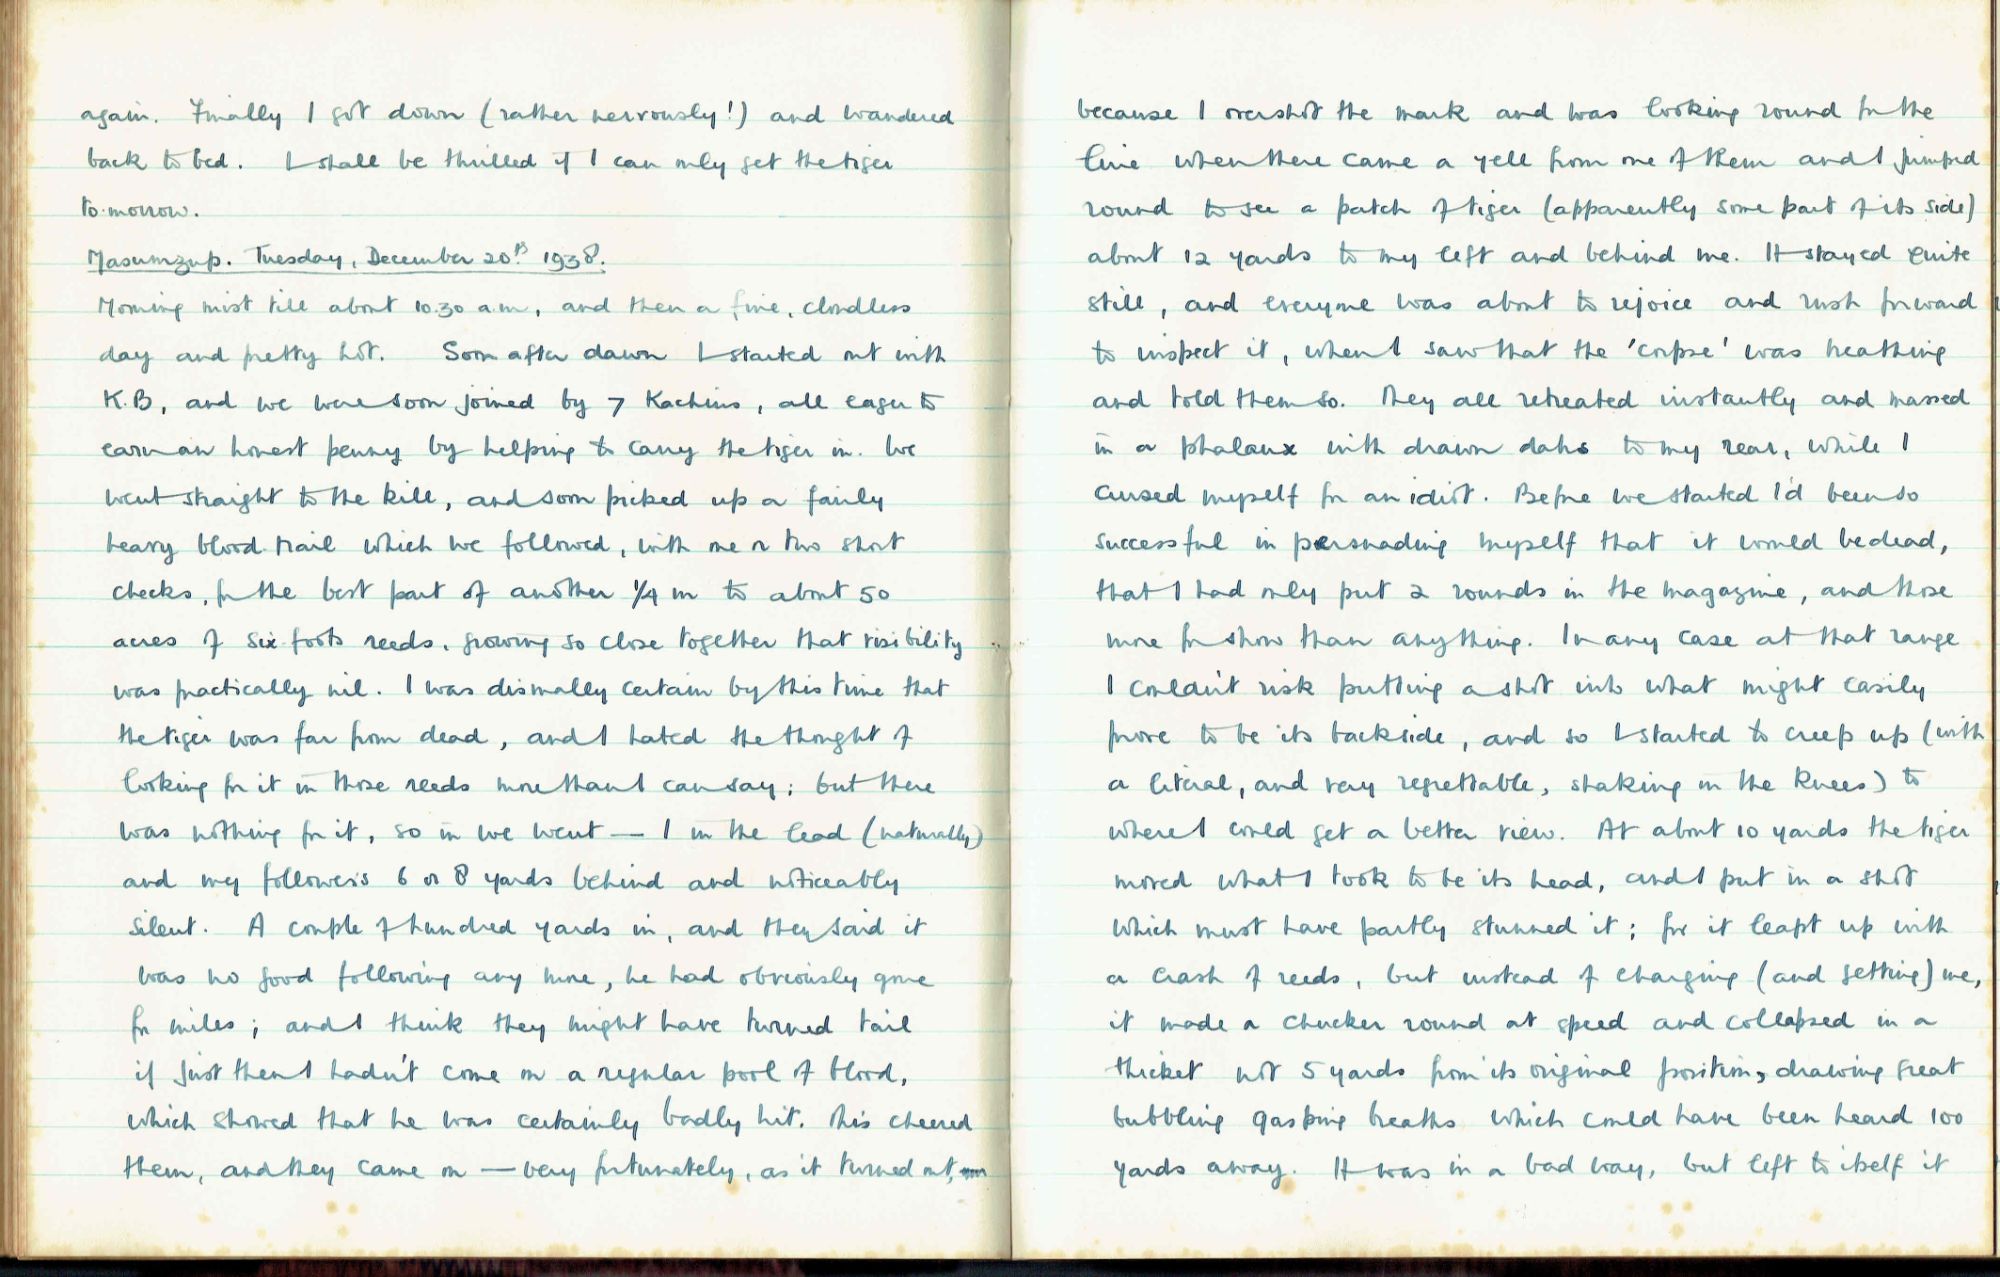 again. Finally I got down (rather nervously!) and wandered
back to bed. I shall be thrilled if I can only get the tiger
to-morrow.
Masumzup. Tuesday, December 20th 1938.
Morning mist till about 10.30 a.m, and then a fine, cloudless
day and pretty hot. Soon after dawn I started out with
K.B, and we were soon joined by 7 Kachins, all eager to
earn an honest penny by helping to carry the tiger in. We
went straight to the kill, and soon picked up a fairly
heavy blood-trail which we followed, with one or two short
checks, for the best part of another 1/4 m to about 50
acres of six-foots reeds, growing so close together that visibility
was practically nil. I was dismally certain by this time that
the tiger was far from dead, and I hated the thought of
looking for it in those reeds more than I can say; but there
was nothing for it, so in we went — I in the lead (naturally)
and my followers 6 or 8 yards behind and noticeably
silent. A couple of hundred yards in, and they said it
was no good following any more, he had obviously gone
for miles; and I think they might have turned tail
if just then I hadn't come on a regular pool of blood,
which showed that he was certainly badly hit. This cheered
them, and they came on — very fortunately, as it turned out,
because I overshot the mark and was looking round for the
line when there came a yell from one of them and I jumped
round to see a patch of tiger (apparently some part of its side)
about 12 yards to my left and behind me. It stayed quite
still, and everyone was about to rejoice and rush forward
to inspect it, when I saw that the 'corpse' was breathing
and told them so. They all retreated instantly and massed
in a phalanx with drawn dahs to my rear, while I
cursed myself for an idiot. Before we started I'd been so
successful in persuading myself that it would be dead,
that I had only put 2 rounds in the magazine, and those
more for show than anything. In any case at that range
I couldn't risk putting a shot into what might easily
prove to be its backside, and so I started to creep up (with
a literal, and very regrettable, shaking in the knees) to
where I could get a better view. At about 10 yards the tiger
moved what I took to be its head, and I put in a shot
which must have partly stunned it; for it leapt up with
a crash of reeds, but instead of charging (and getting) me,
it made a chucker round at speed and collapsed in a
thicket not 5 yards from its original position, drawing great
bubbling gasping breaths which could have been heard 100
yards away. It was in a bad way, but left to itself it